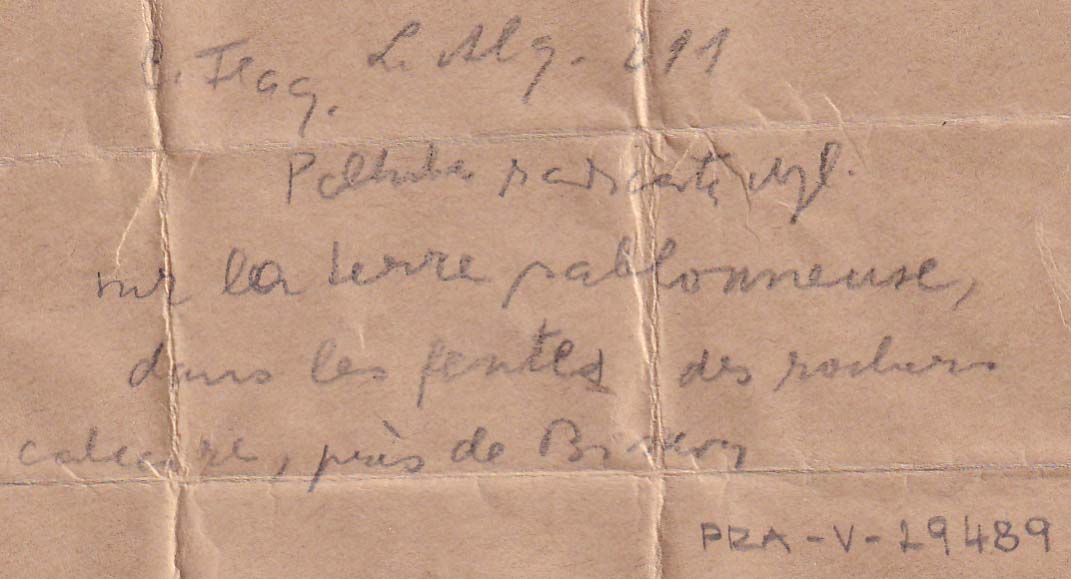 C. Flag. L. Alg. 211
Peltula radicata Nyl.
sur la terre sablonneuse,
dans les fentes des rochers
calcaire, près de
PRA-V-19489